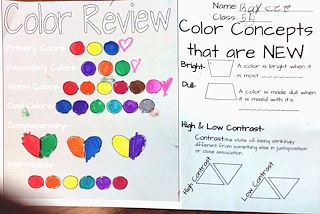 Color Review
Primary Colors-
Secondary Colors-
Warm Colors-
Cool Colors-
Complementary-
Intermediate-
Name:
Class: 5B
Color Concepts
that are NEW
Bright-
A color is bright when it
is most
Dull-
A color is made dull when
it is mixed with it's
High & Low Contrast-
Contrast-the state of being strikingly
different from something else in juxtaposition
or close association.
High Contrast
Low Contrast